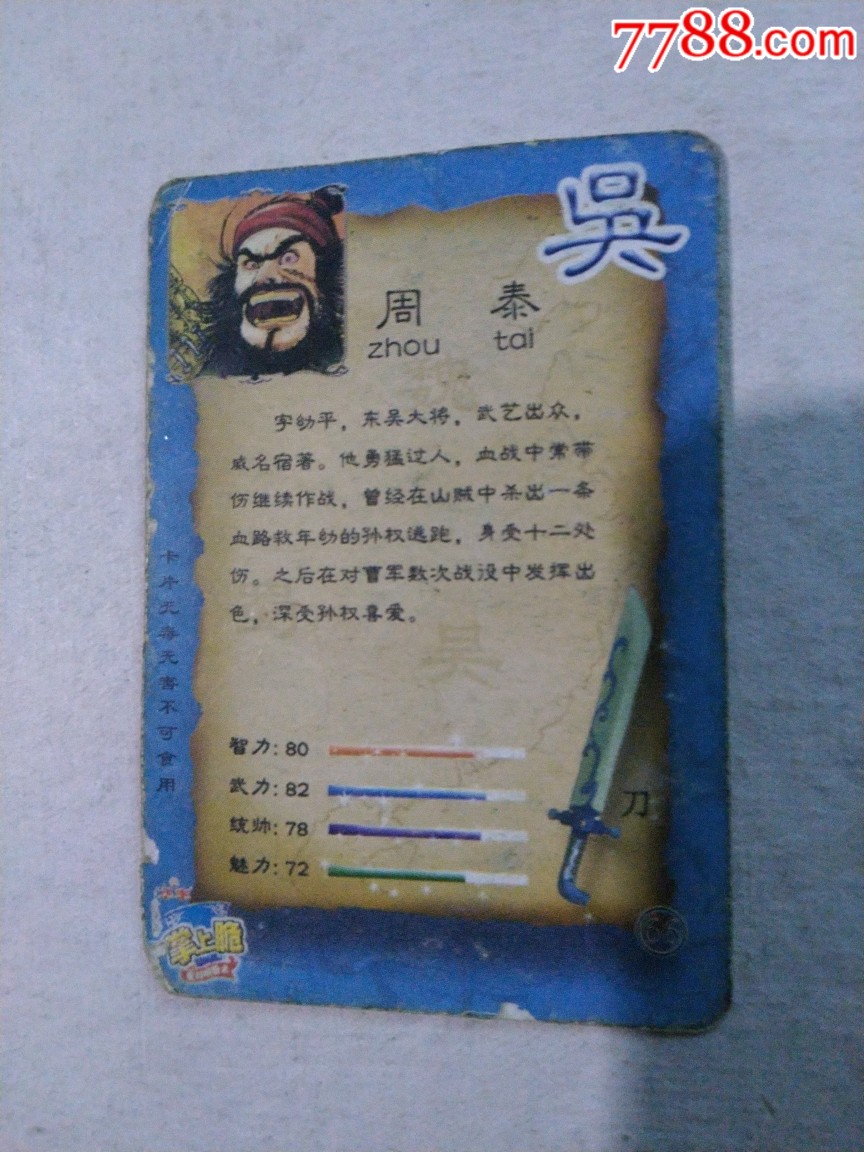 7788.com
吳
周 泰
zhou tai
字幼平，东吴大将，武艺出众，
威名宿著。他勇猛过人，血战中常带
伤继续作战，曾经在山贼中杀出一条
血路救年幼的孙权逃跑，身受十二处
伤。之后在对曹军数次战役中发挥出
色，深受孙权喜爱。
吴
卡片无毒无害不可食用
智力：80
武力：82
统帅：78
魅力：72
刀
掌上脆